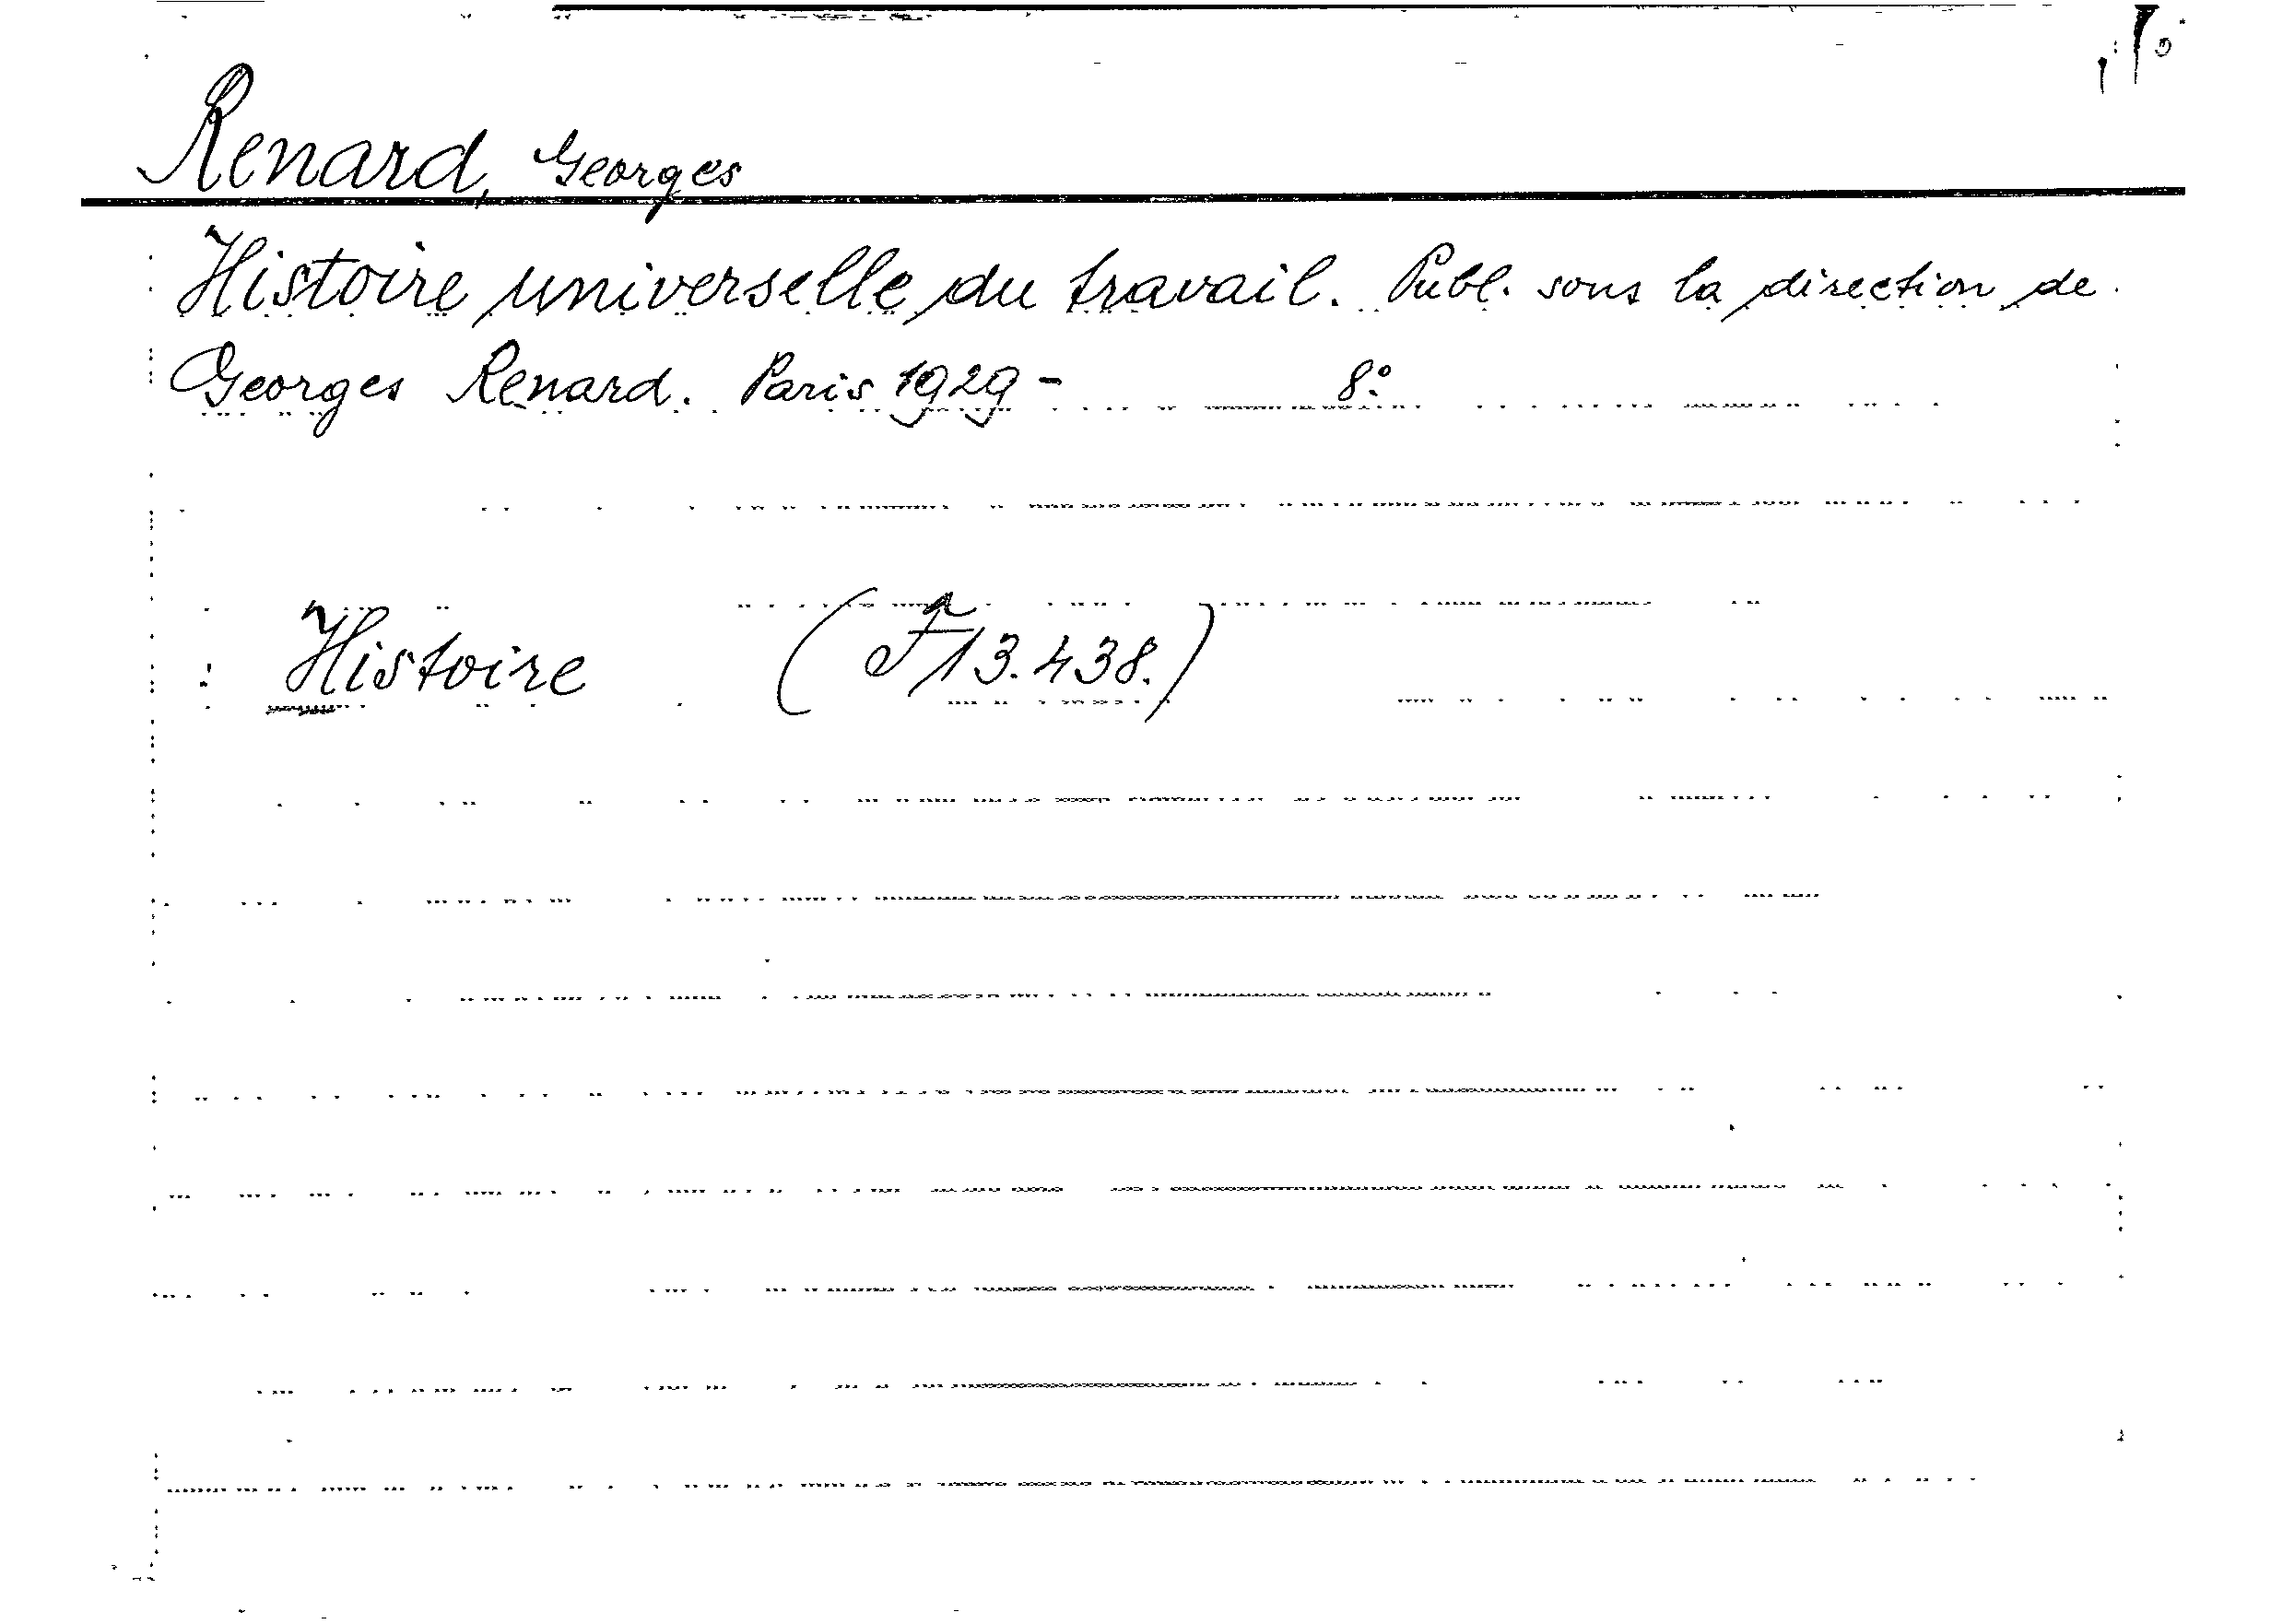 Renard, Georges
Histoire universelle du travail. Publ. sous la direction de
Georges Renard. Paris 1929- 8:o
Histoire (F13.438.)